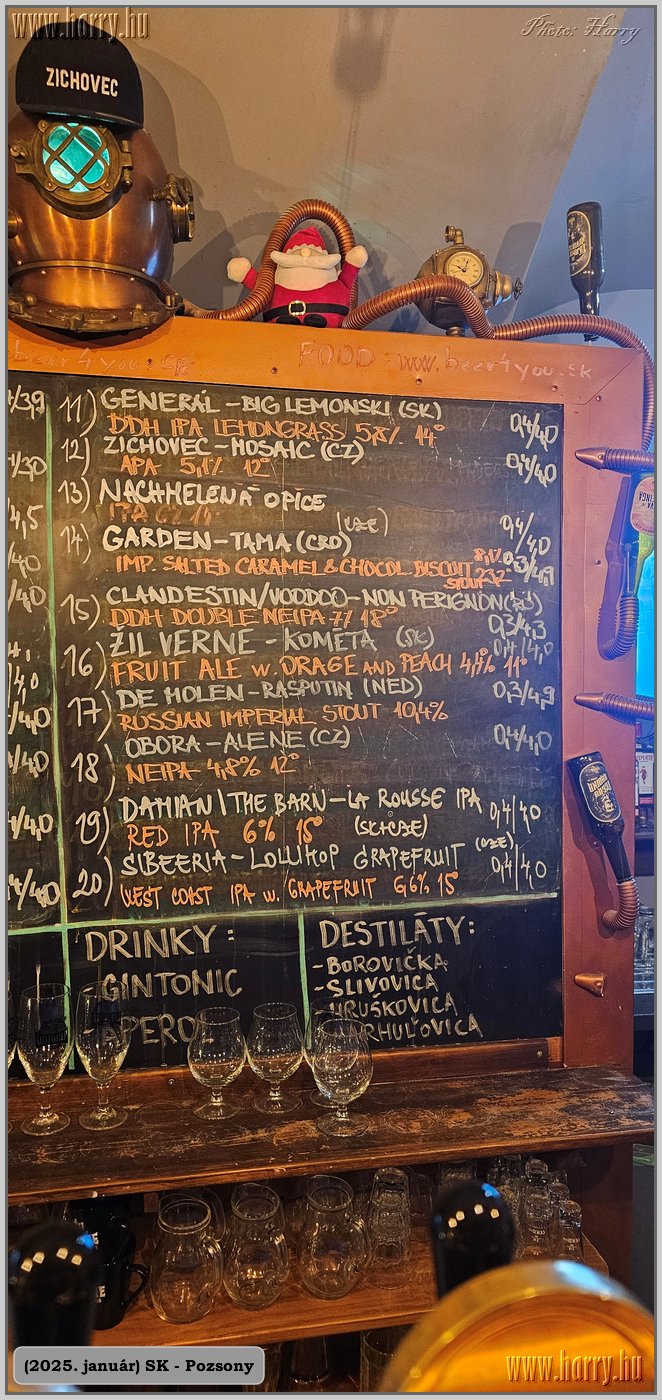 www.harry.hu
Photo: Harry
ZICHOVEC
beer4you.sk
FOOD: www.beer4you.sk
11) GENERÁL - BIG LEMONSKI (SK)
DDH IPA LEMONGRASS 5,8% 14° 0,4/4,0
12) ZICHOVEC - MOSAIC (CZ)
APA 5,1% 12° 0,4/4,0
13) NACHMELENÁ OPICE
IPA 14° 0,4/4,0
14) GARDEN - TAMA (CRO)
IMP. SALTED CARAMEL & CHOCOL. BISCUIT STOUT 0,3/4,9
15) CLANDESTIN/VOODOO - NON PERIGNON
DDH DOUBLE NEIPA 7,1 18° 0,3/4,3
16) ŽIL VERNE - KOMETA (SK) 0,4/4,0
FRUIT ALE W. ORAGE AND PEACH 4,4% 11°
17) DE MOLEN - RASPUTIN (NED) 0,3/4,9
RUSSIAN IMPERIAL STOUT 10,4%
18) OBORA - ALENE (CZ) 0,4/4,0
NEIPA 4,8% 12°
19) DAMIAN | THE BARN - LA ROUSSE IPA 0,4/4,0
RED IPA 6% 15°
20) SIBEERIA - LOLLIHOP GRAPEFRUIT 0,4/4,0
WEST COAST IPA W. GRAPEFRUIT 6,6% 15°
DRINKY:
- GINTONIC
- APEROL
DESTILÁTY:
- BOROVIČKA
- SLIVOVICA
- HRUŠKOVICA
- MARHUĽOVICA
(2025. január) SK - Pozsony
www.harry.hu